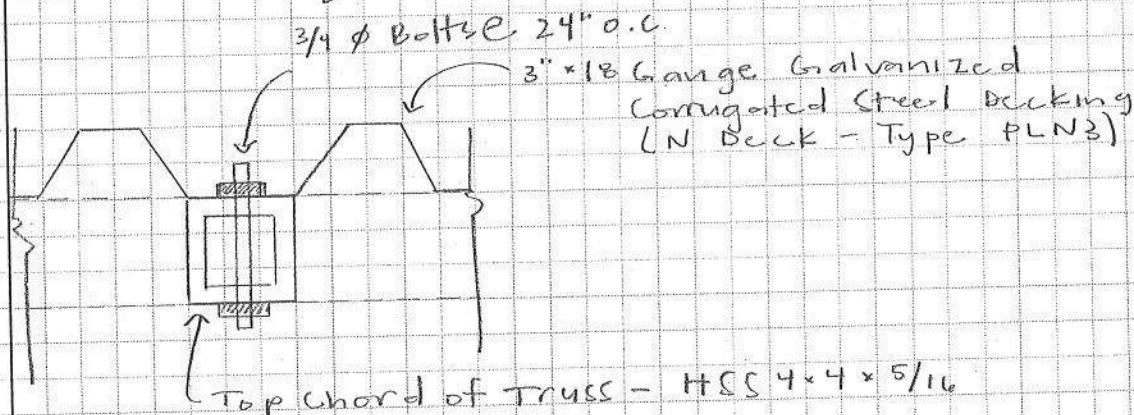 3/4 ⌀ Bolts @ 24" O.C.
3" × 18 Gauge Galvanized
Corrugated Steel Decking
(N Deck - Type PLN3)
Top Chord of Truss - HSS 4 × 4 × 5/16